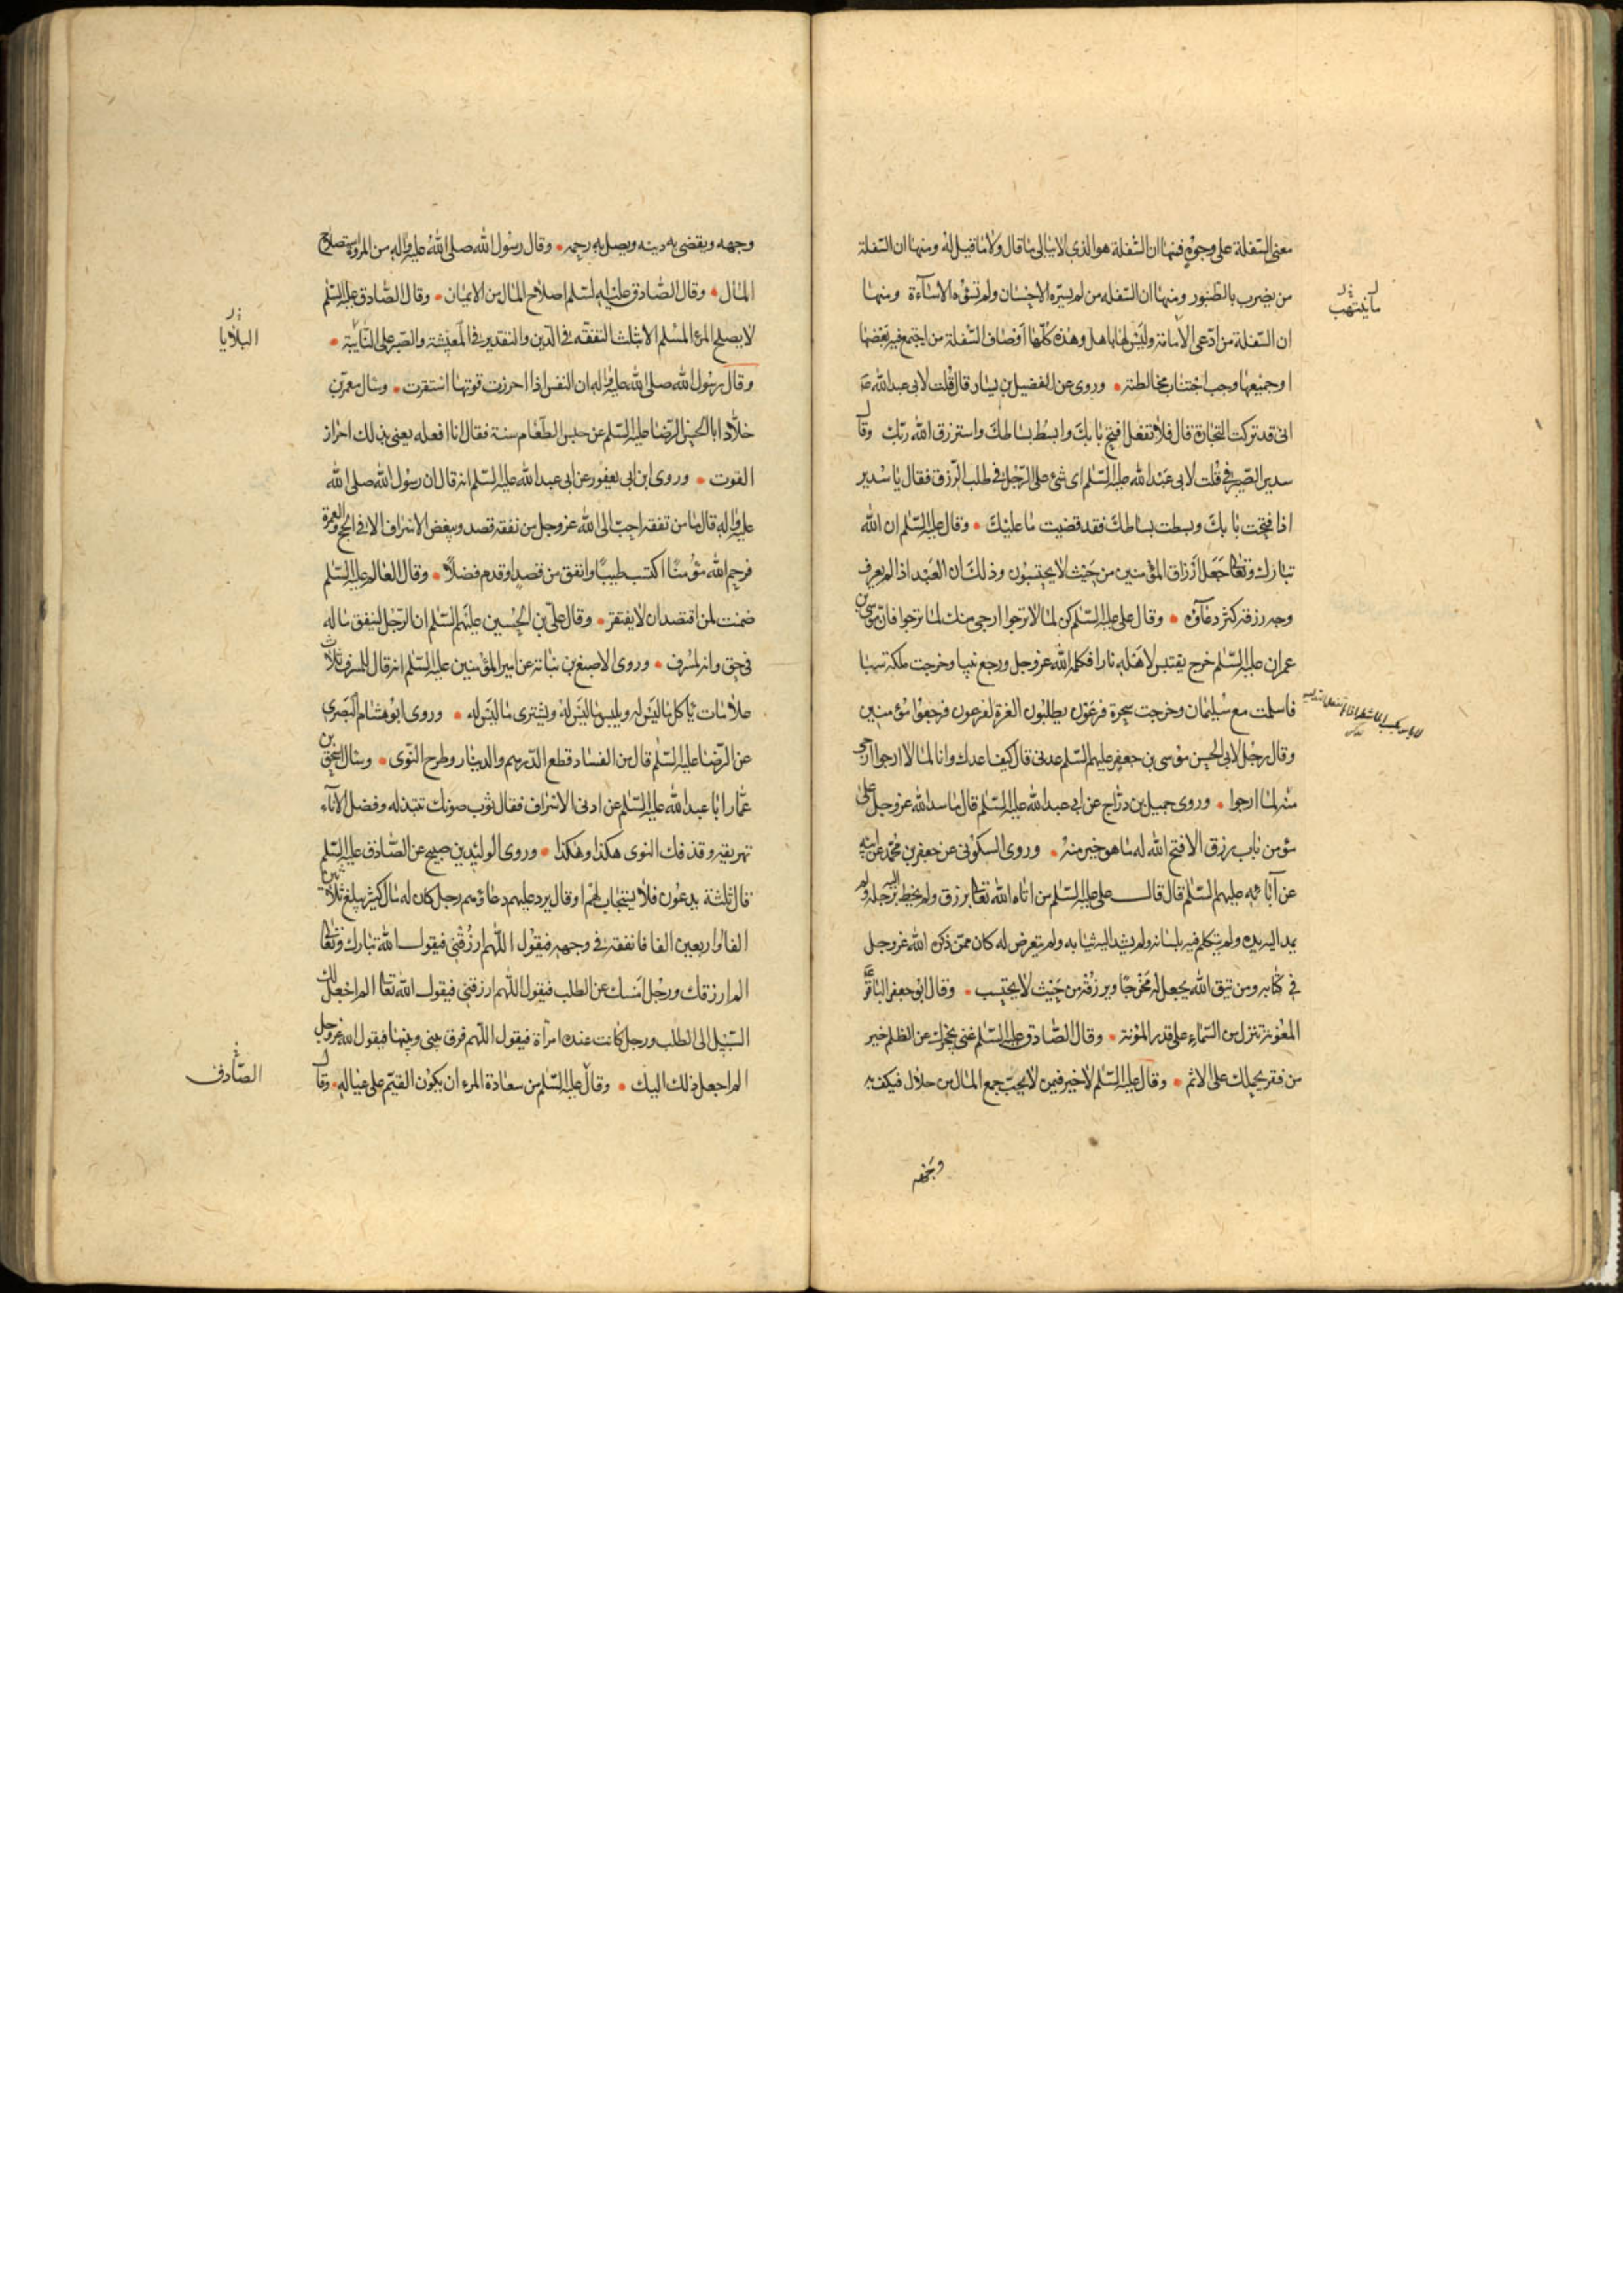 معنى السفلة على وجوه فمنها ان السفلة هو الذى لا يبالى ما قال ولا ما قيل له ومنها ان السفلة
من يضرب بالطنبور ومنها ان السفله من لم يسره الاحسان ولم تسؤه الاساءة ومنها
ان السفلة من ادعى الامامة وليس لها باهل وهذه كلها اوصاف السفلة من اجتمع فيه بعضها
او جميعها وجب اجتناب مخالطته وروى عن الفضيل بن يسار قال قلت لابى عبدالله ع
انى قد تركت التجارة قال فلا تفعل افتح بابك وابسط بساطك واسترزق الله ربك وقال
سدير الصيرفى قلت لابى عبد الله عليه السلام اى شئ على الرجل فى طلب الرزق فقال يا سدير
اذا فتحت بابك وبسطت بساطك فقد قضيت ما عليك وقال عليه السلم ان الله
تبارك وتعالى جعل ارزاق المؤمنين من حيث لا يحتسبون وذلك ان العبد اذا لم يعرف
وجه رزقه كثر دعاؤه وقال على عليه السلم كن لما لا ترجوا ارجى منك لما ترجوا فان موسى بن
عمران عليه السلم خرج يقتبس لاهله نارا فكلمه الله عز وجل ورجع نبيا وخرجت ملكة سبا
فاسلمت مع سليمان وخرجت سحرة فرعون يطلبون العزة لفرعون فرجعوا مؤمنين
وقال رجل لابى الحسن موسى بن جعفر عليهم السلم عدنى قال كيف اعدك وانا لما لا ارجوا ارجى
منه لما ارجوا وروى جميل بن دراج عن ابى عبدالله عليه السلم قال ما سد الله عز وجل على
مؤمن باب رزق الا فتح الله له ما هو خير منه وروى السكونى عن جعفر بن محمد عن ابيه
عن آبائه عليهم السلم قال قال على عليه السلم من اتاه الله تعالى برزق ولم يخط اليه برجله ولم
يمد اليه يده ولم يتكلم فيه بلسانه ولم يشد اليه ثيابه ولم يتعرض له كان ممن ذكره الله عز وجل
فى كتابه ومن يتق الله يجعل له مخرجا ويرزقه من حيث لا يحتسب وقال ابو جعفر الباقر ع
المعونة تنزل من السماء على قدر المؤنة وقال الصادق عليه السلم غنى يحجزك عن الظلم خير
من فقر يحملك على الاثم وقال عليه السلم لا خير فيمن لا يحب جمع المال من حلال فيكف به
وجهه ويقضى به دينه ويصل به رحمه وقال رسول الله صلى الله عليه واله من المروة استصلاح
المال وقال الصادق عليه السلم اصلاح المال من الايمان وقال الصادق عليه السلم
لا يصلح المرء المسلم الا بثلث التفقه فى الدين والتقدير فى المعيشة والصبر على النائبة
البلايا
وقال رسول الله صلى الله عليه واله ان النفس اذا احرزت قوتها استقرت وسال معمر بن
خلاد ابا الحسن الرضا عليه السلم عن حبس الطعام سنة فقال انا افعله يعنى بذلك احراز
القوت وروى ابن ابى يعفور عن ابى عبدالله عليه السلم انه قال ان رسول الله صلى الله
عليه واله قال ما من نفقة احب الى الله عز وجل من نفقة قصد ويبغض الاسراف الا فى الحج والعمرة
فرحم الله مؤمنا اكتسب طيبا وانفق من قصد او قدم فضلا وقال العالم عليه السلم
ضمنت لمن اقتصد ان لا يفتقر وقال على بن الحسين عليهم السلم ان الرجل لينفق ماله
فى حق وانه لمسرف وروى الاصبغ بن نباتة عن امير المؤمنين عليه السلم انه قال للمسرف ثلاث
علامات ياكل ما ليس له ويلبس ما ليس له ويشترى ما ليس له وروى ابو هشام البصرى
عن الرضا عليه السلم قال من الفساد قطع الدرهم والدينار وطرح النوى وسال اسحق بن
عمار ابا عبدالله عليه السلم عن ادنى الاسراف فقال ثوب صونك تبتذله وفضل الاناء
تهريقه وقذفك النوى هكذا وهكذا وروى الوليد بن صبيح عن الصادق عليه السلم
قال ثلثة يدعون فلا يستجاب لهم او قال يرد عليهم دعاؤهم رجل كان له مال كثير يبلغ ثلاثين
الفا او اربعين الفا فانفقه فى وجهه فيقول اللهم ارزقنى فيقول الله تبارك وتعالى
الم ارزقك ورجل امسك عن الطلب فيقول اللهم ارزقنى فيقول الله تعالى الم اجعل لك
السبيل الى الطلب ورجل كانت عنده امراة فيقول اللهم فرق بينى وبينها فيقول الله عز وجل
الم اجعل ذلك اليك وقال عليه السلم من سعادة المرء ان يكون القيم على عياله وقال
الصادق